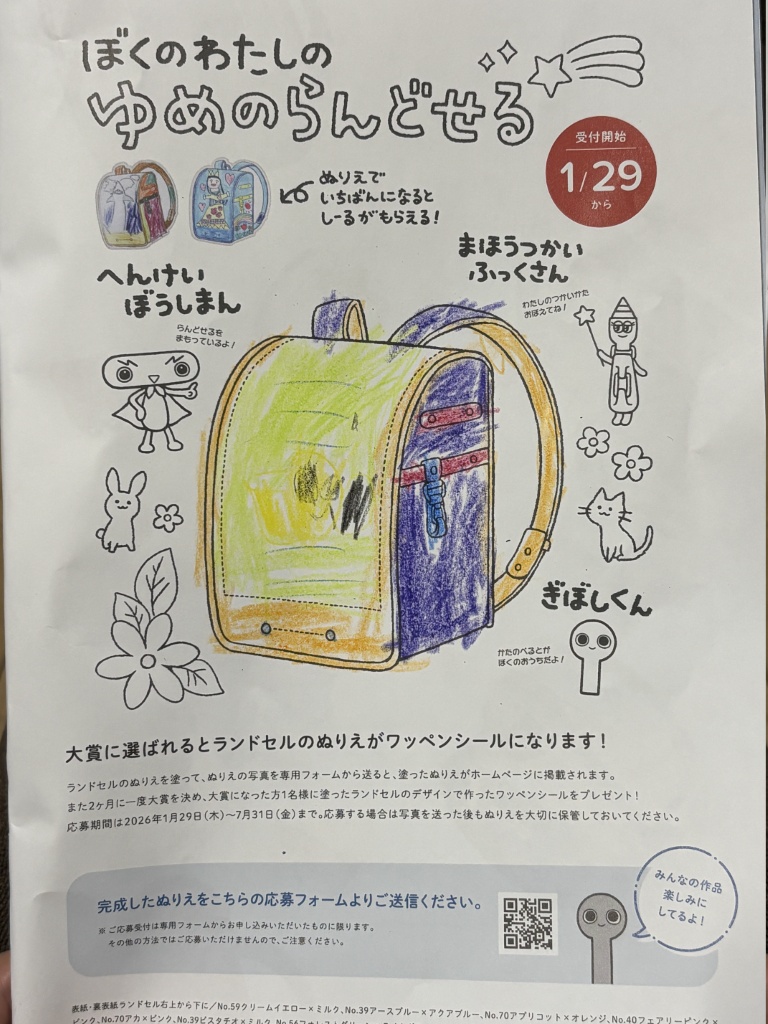 ぼくのわたしの
ゆめのらんどせる
受付開始
1/29
から
ぬりえで
いちばんになると
しーるがもらえる!
へんけい
ぼうしまん
らんどせるを
まもっているよ!
まほうつかい
ふっくさん
わたしのつかいかた
おぼえてね!
ぎぼしくん
かたのべるとが
ぼくのおうちだよ!
大賞に選ばれるとランドセルのぬりえがワッペンシールになります!
ランドセルのぬりえを塗って、ぬりえの写真を専用フォームから送ると、塗ったぬりえがホームページに掲載されます。
また2ヶ月に一度大賞を決め、大賞になった方1名様に塗ったランドセルのデザインで作ったワッペンシールをプレゼント!
応募期間は2026年1月29日(木)〜7月31日(金)まで。応募する場合は写真を送った後もぬりえを大切に保管しておいてください。
完成したぬりえをこちらの応募フォームよりご送信ください。
※ご応募受付は専用フォームからお申し込みいただいたものに限ります。
その他の方法ではご応募いただけませんので、ご注意ください。
みんなの作品
楽しみに
してるよ!
表紙・裏表紙ランドセル右上から下に/No.59クリームイエロー×ミルク、No.39アースブルー×アクアブルー、No.70アプリコット×オレンジ、No.40フェアリーピンク×
ピンク、No.70アカ×ピンク、No.39ピスタチオ×ミルク、No.56フォレストグリーン